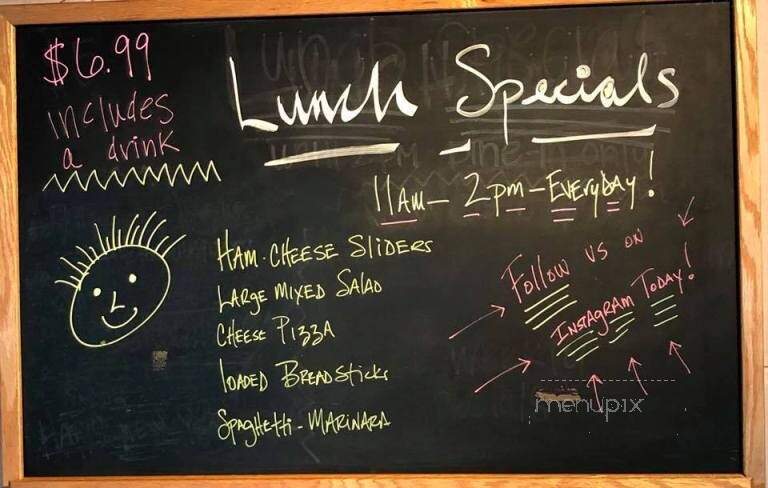 $6.99
includes
a drink
Lunch Specials
11am - 2pm - Everyday!
Ham · Cheese Sliders
Large Mixed Salad
Cheese Pizza
Loaded Breadsticks
Spaghetti - Marinara
Follow us on
Instagram Today!
menupix